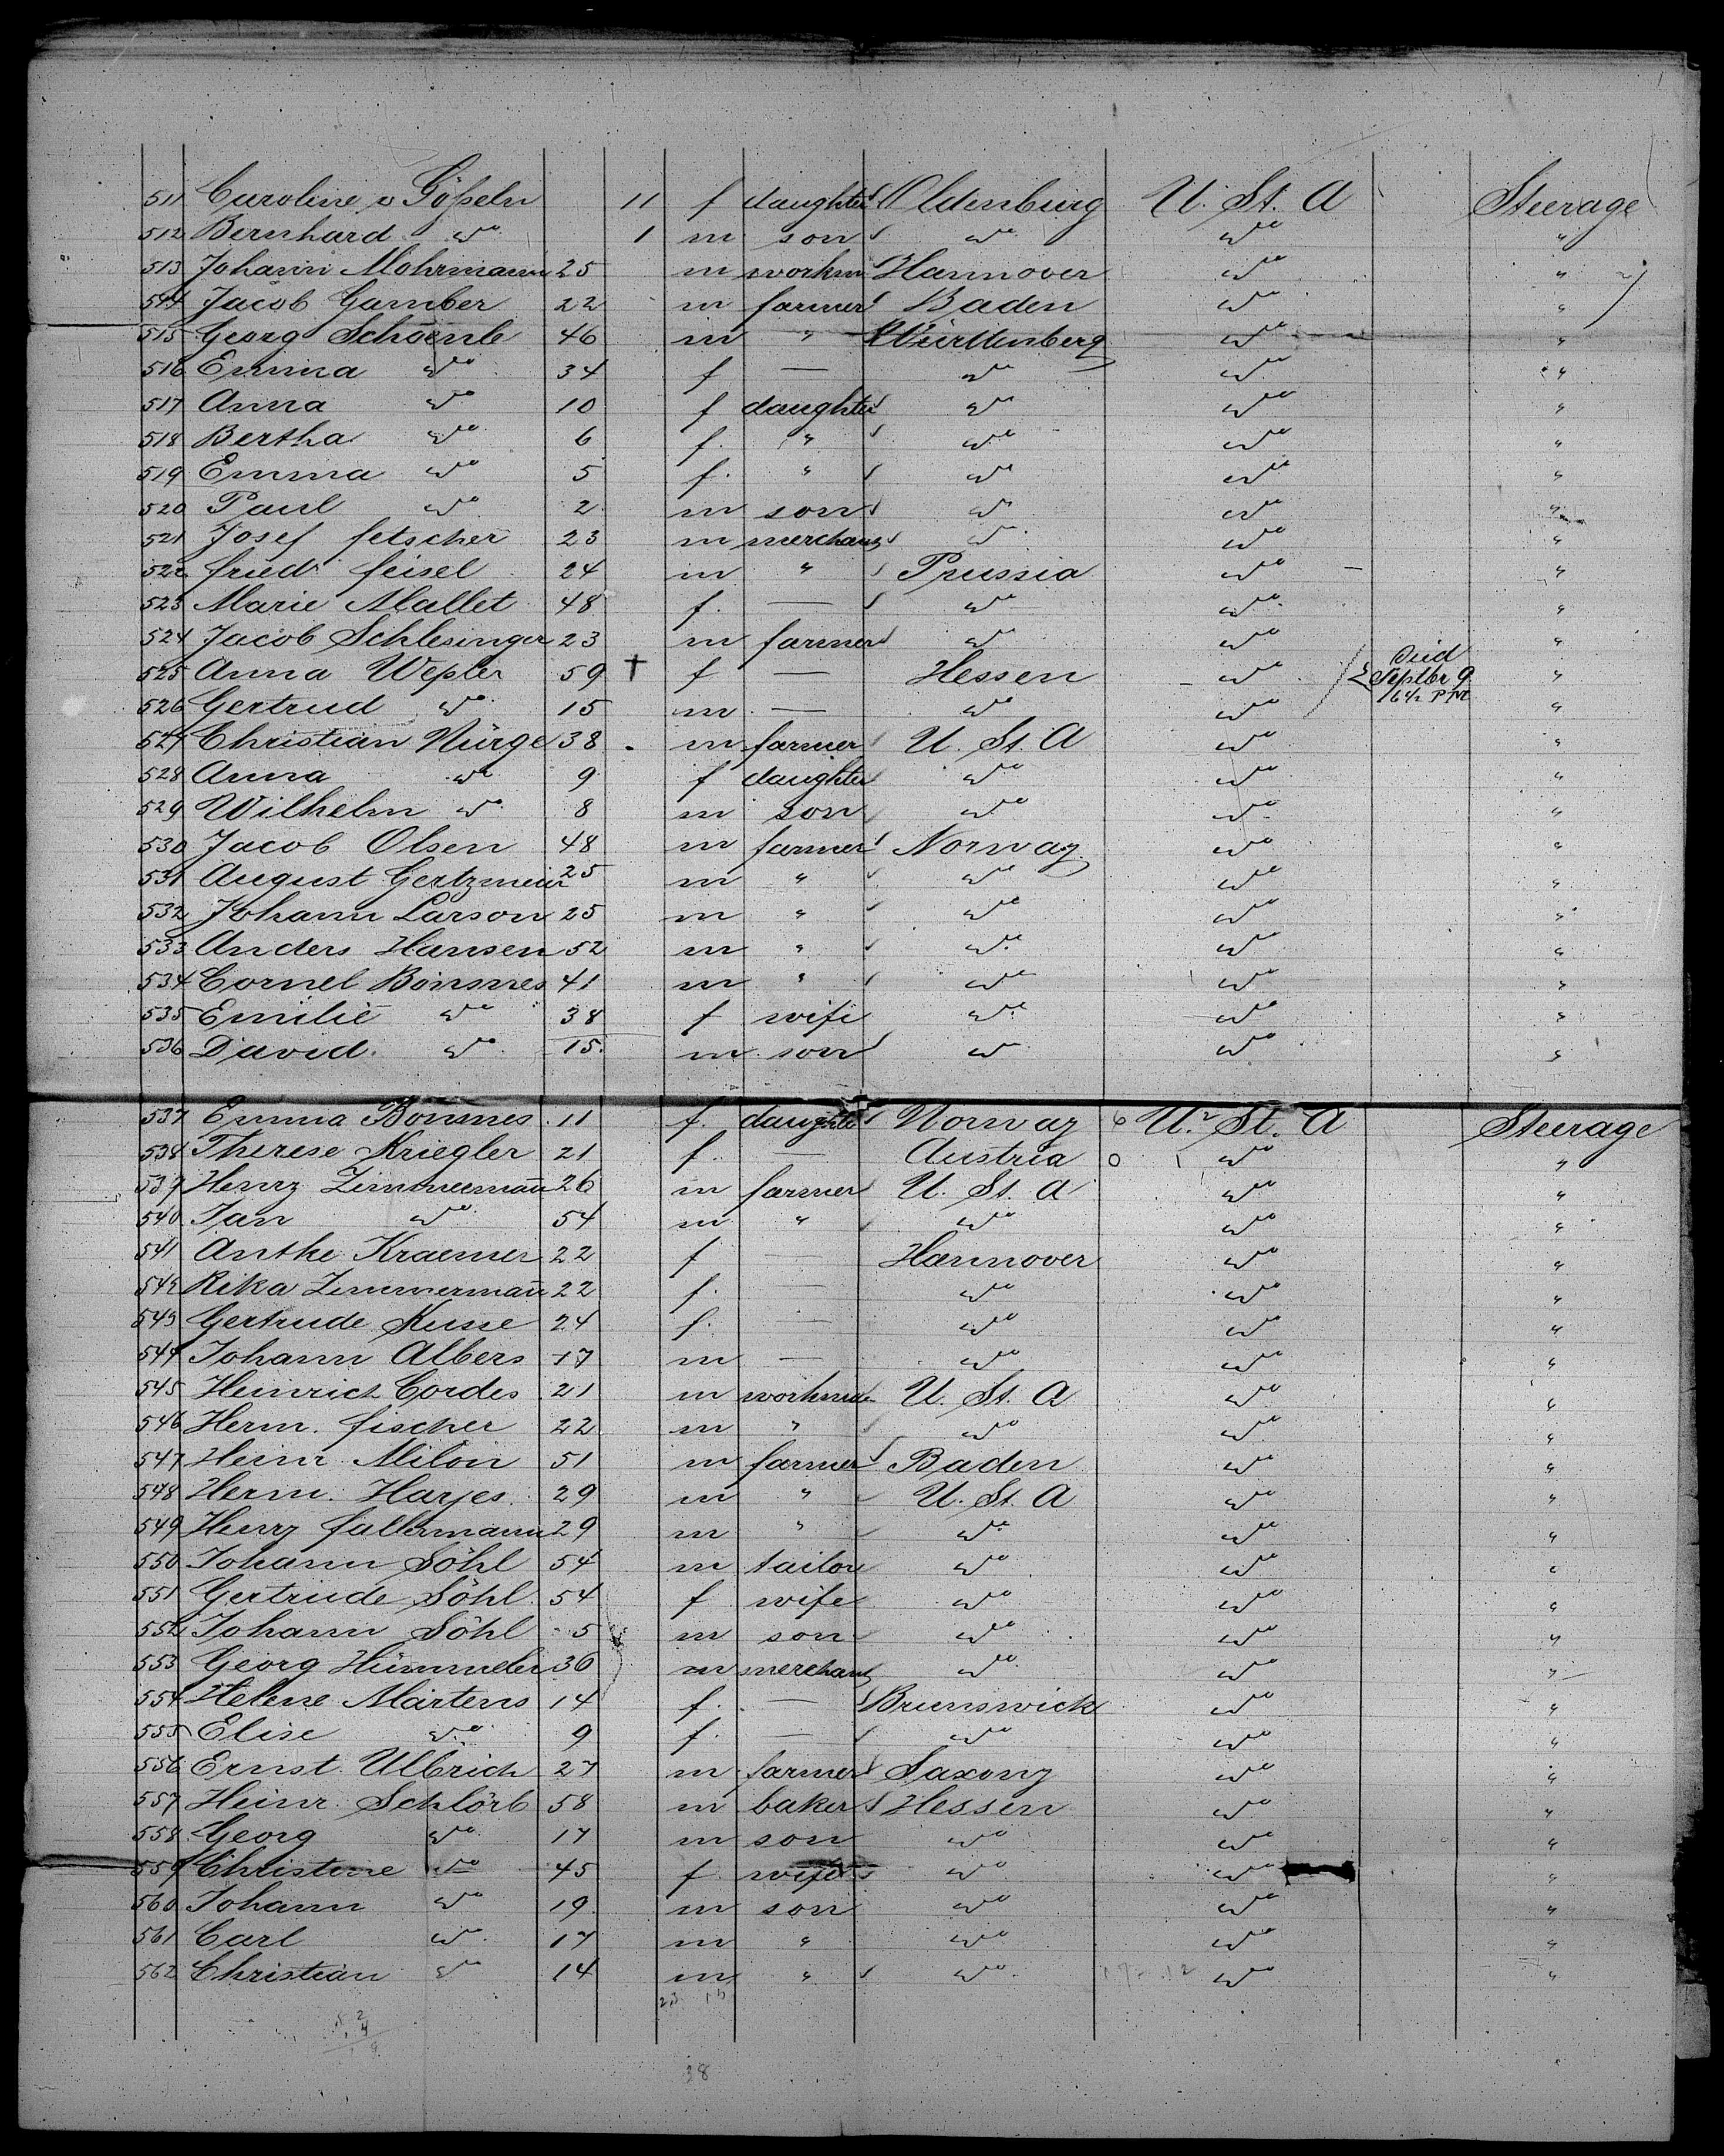 511 Caroline v Gößeln 11 f daughter Oldenburg U. St. A Steerage
512 Bernhard do 1 m son do do "
513 Johann Mohrmann 25 m workm Hannover do "
514 Jacob Gamber 22 m farmer Baden do "
515 Georg Schoenle 46 m " Württenberg do "
516 Emma do 34 f — do do "
517 Anna do 10 f daughter do do "
518 Bertha do 6 f. " do do "
519 Emma do 5 f. " do do "
520 Paul do 2 m son do do "
521 Josef fetscher 23 m merchant do do "
522 fried. feisel 24 m " Prussia do "
523 Marie Mallet 48 f. — do do "
524 Jacob Schlesinger 23 m farmer do do "
525 Anna Wepler 59 † f — Hessen do Died Septbr 9 6½ PM "
526 Gertrud do 15 m — do do "
527 Christian Nürge 38 m farmer U. St. A do "
528 Anna do 9 f daughter do do "
529 Wilhelm do 8 m son do do "
530 Jacob Olsen 48 m farmer Norway do "
531 August Gertzmeier 25 m " do do "
532 Johann Larson 25 m " do do "
533 Anders Hansen 52 m " do do "
534 Cornel Bonsnes 41 m " do do "
535 Emilie do 38 f wife do do "
536 David do 15 m son do do "
537 Emma Bonsnes 11 f. daughter Norway U. St. A Steerage
538 Therese Kriegler 21 f. — Austria do "
539 Henry Zimmermann 26 m farmer U. St. A do "
540 Jan do 54 m " do do "
541 Anthe Kraemer 22 f — Hannover do "
542 Rika Zimmermann 22 f. — do do "
543 Gertrude Kusse 24 f. — do do "
544 Johann Albers 17 m — do do "
545 Heinrich Cordes 21 m workm U. St. A do "
546 Herm. fischer 22 m " do do "
547 Heinr Milon 51 m farmer Baden do "
548 Herm. Harjes 29 m " U. St. A do "
549 Henry fallermann 29 m " do do "
550 Johann Söhl 54 m tailor do do "
551 Gertrude Söhl 54 f wife do do "
552 Johann Söhl 5 m son do do "
553 Georg Hümmeler 30 m merchant do do "
554 Helene Martens 14 f. — Brunswick do "
555 Elise do 9 f. — do do "
556 Ernst Ulbrich 27 m farmer Saxony do "
557 Heinr Schlörb 58 m baker Hessen do "
558 Georg do 17 m son do do "
559 Christine do 45 f wife do do "
560 Johann do 19 m son do do "
561 Carl do 17 m " do do "
562 Christian do 14 m " do do "
38